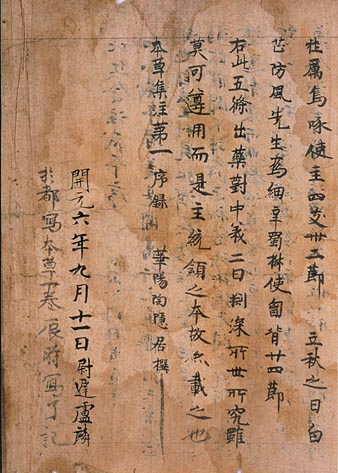 牡厲烏啄使主四支卅二節　立秋之日白
芷防風先生為細辛蜀椒使匈背廿四節
右此五條出藥對中義旨渕深所世所究雖
莫可遵用而是主統領之本故亦載之也
本草集注第一序録　華陽陶隱居撰
開元六年九月十一日尉遲盧麟
於都寫本草一卷辰時寫了記